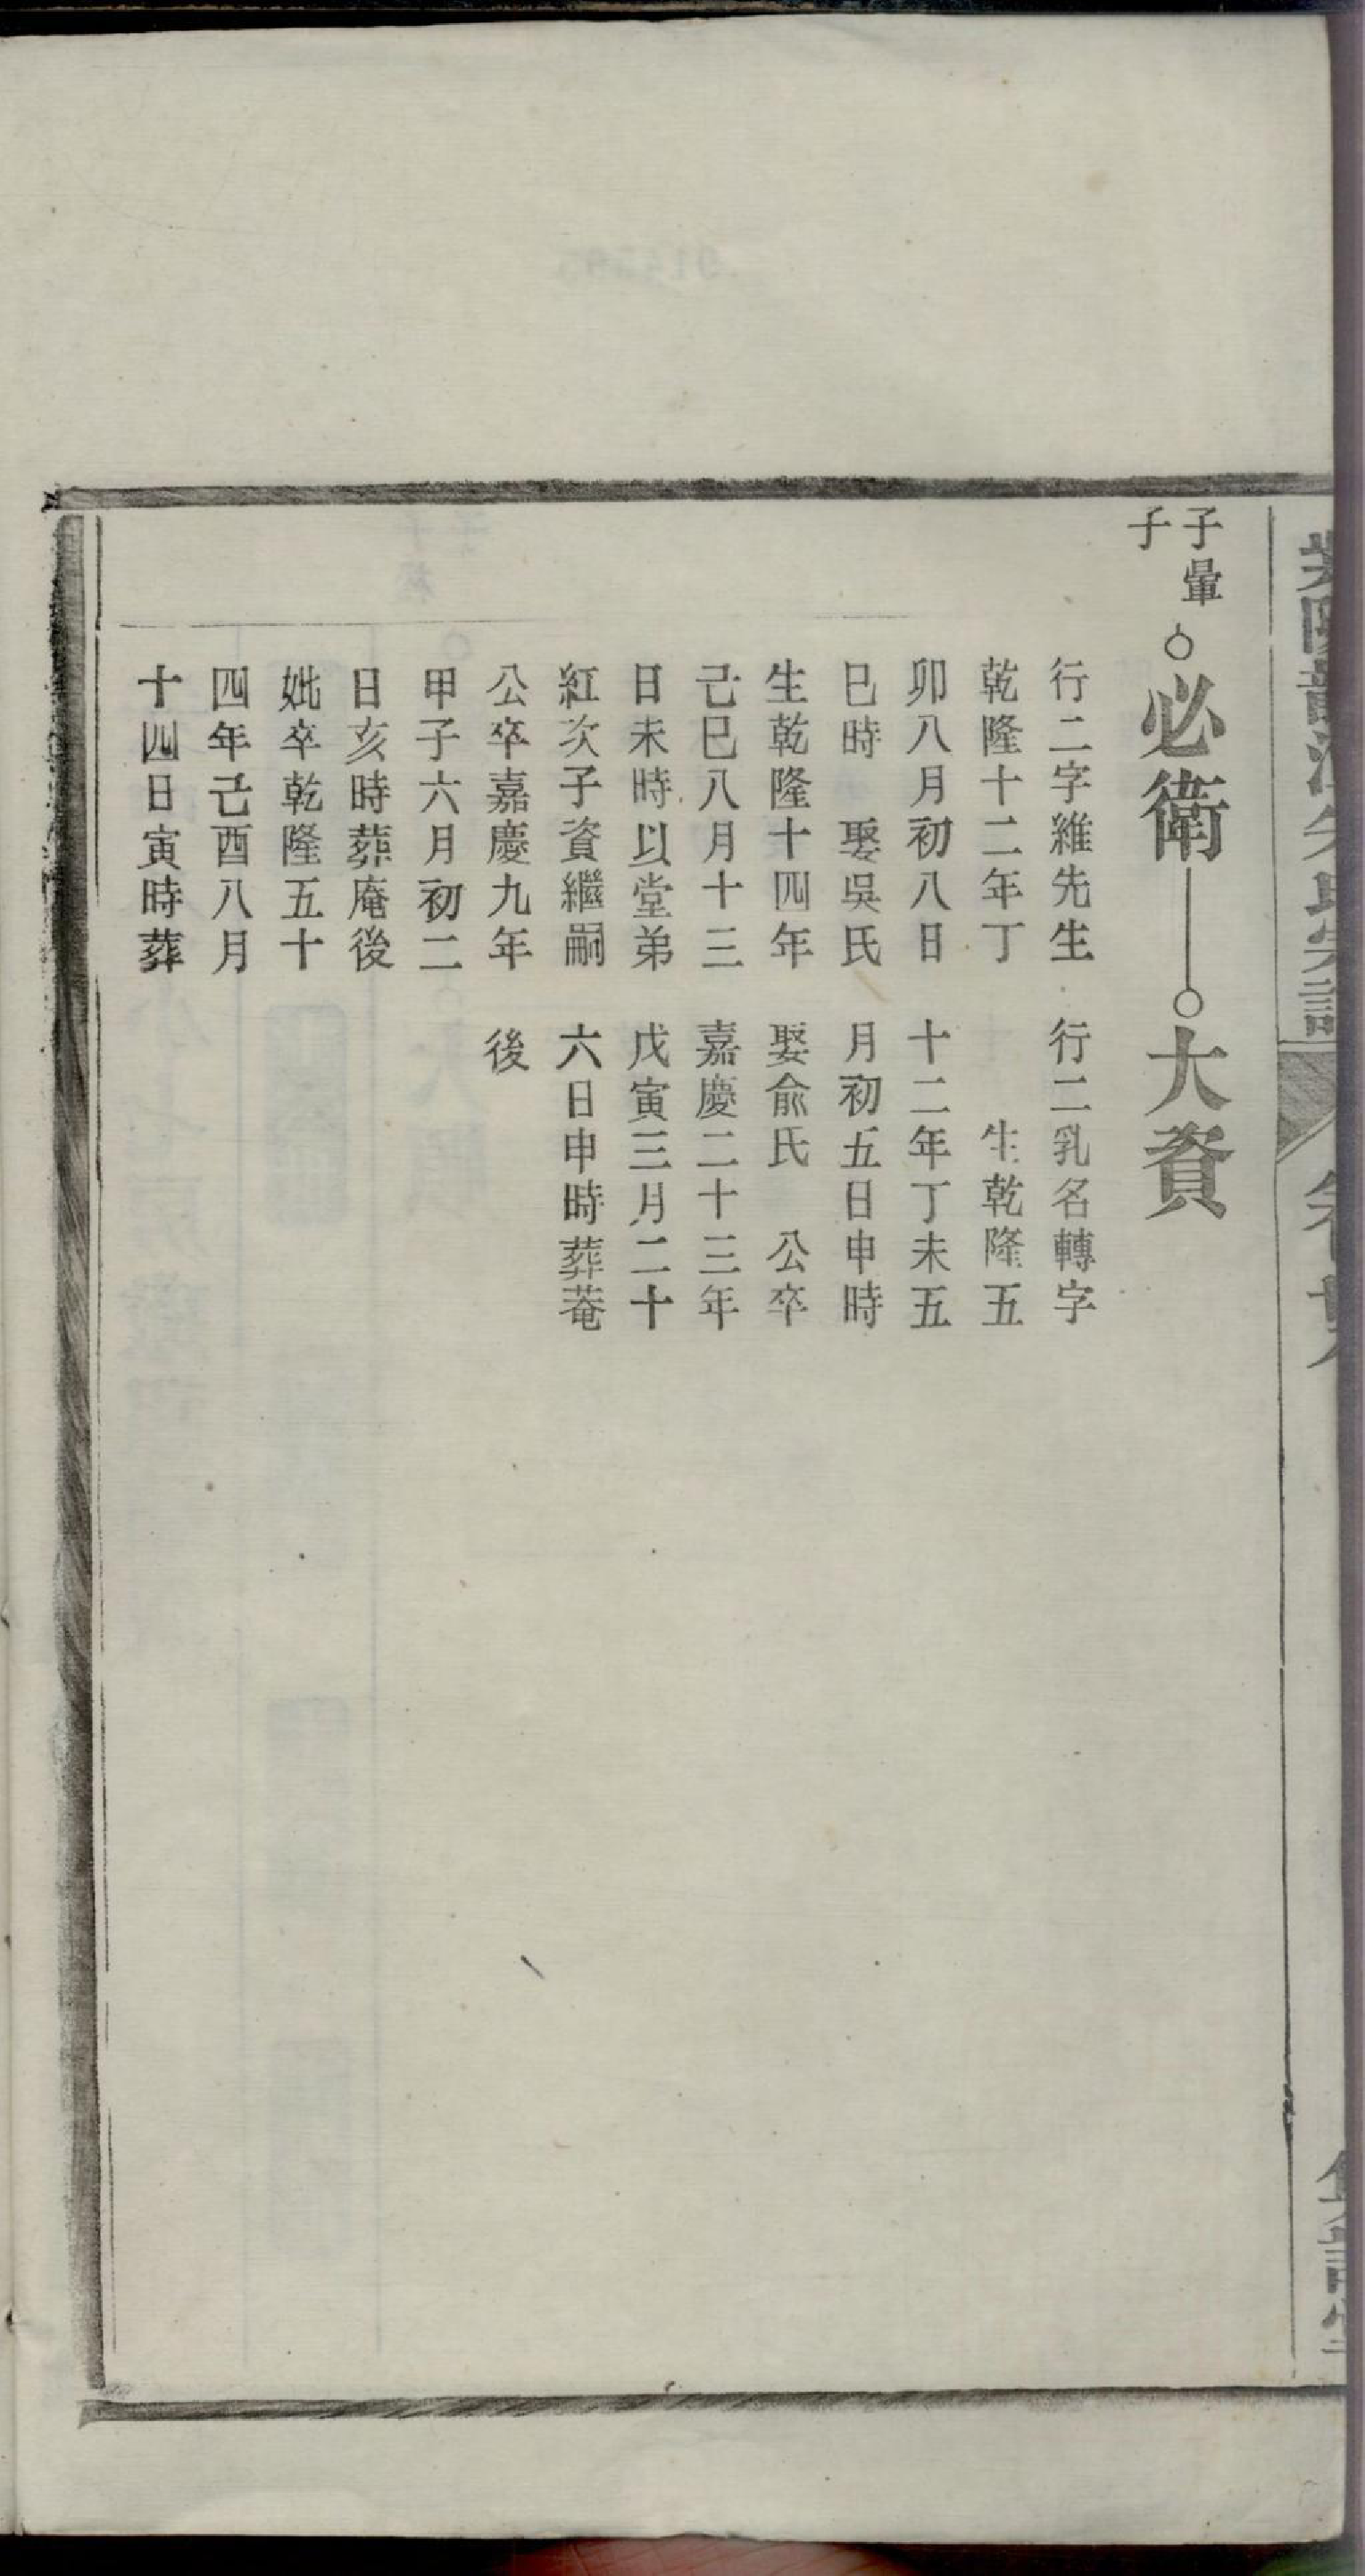 子暈
子
必衛
大資
行二字維先生
乾隆十二年丁
卯八月初八日
巳時　娶吳氏
生乾隆十四年
己巳八月十三
日未時以堂弟
紅次子資繼嗣
公卒嘉慶九年
甲子六月初二
日亥時葬庵後
妣卒乾隆五十
四年己酉八月
十四日寅時葬
行二乳名轉字
生乾隆五
十二年丁未五
月初五日申時
娶俞氏　公卒
嘉慶二十三年
戊寅三月二十
六日申時葬菴
後